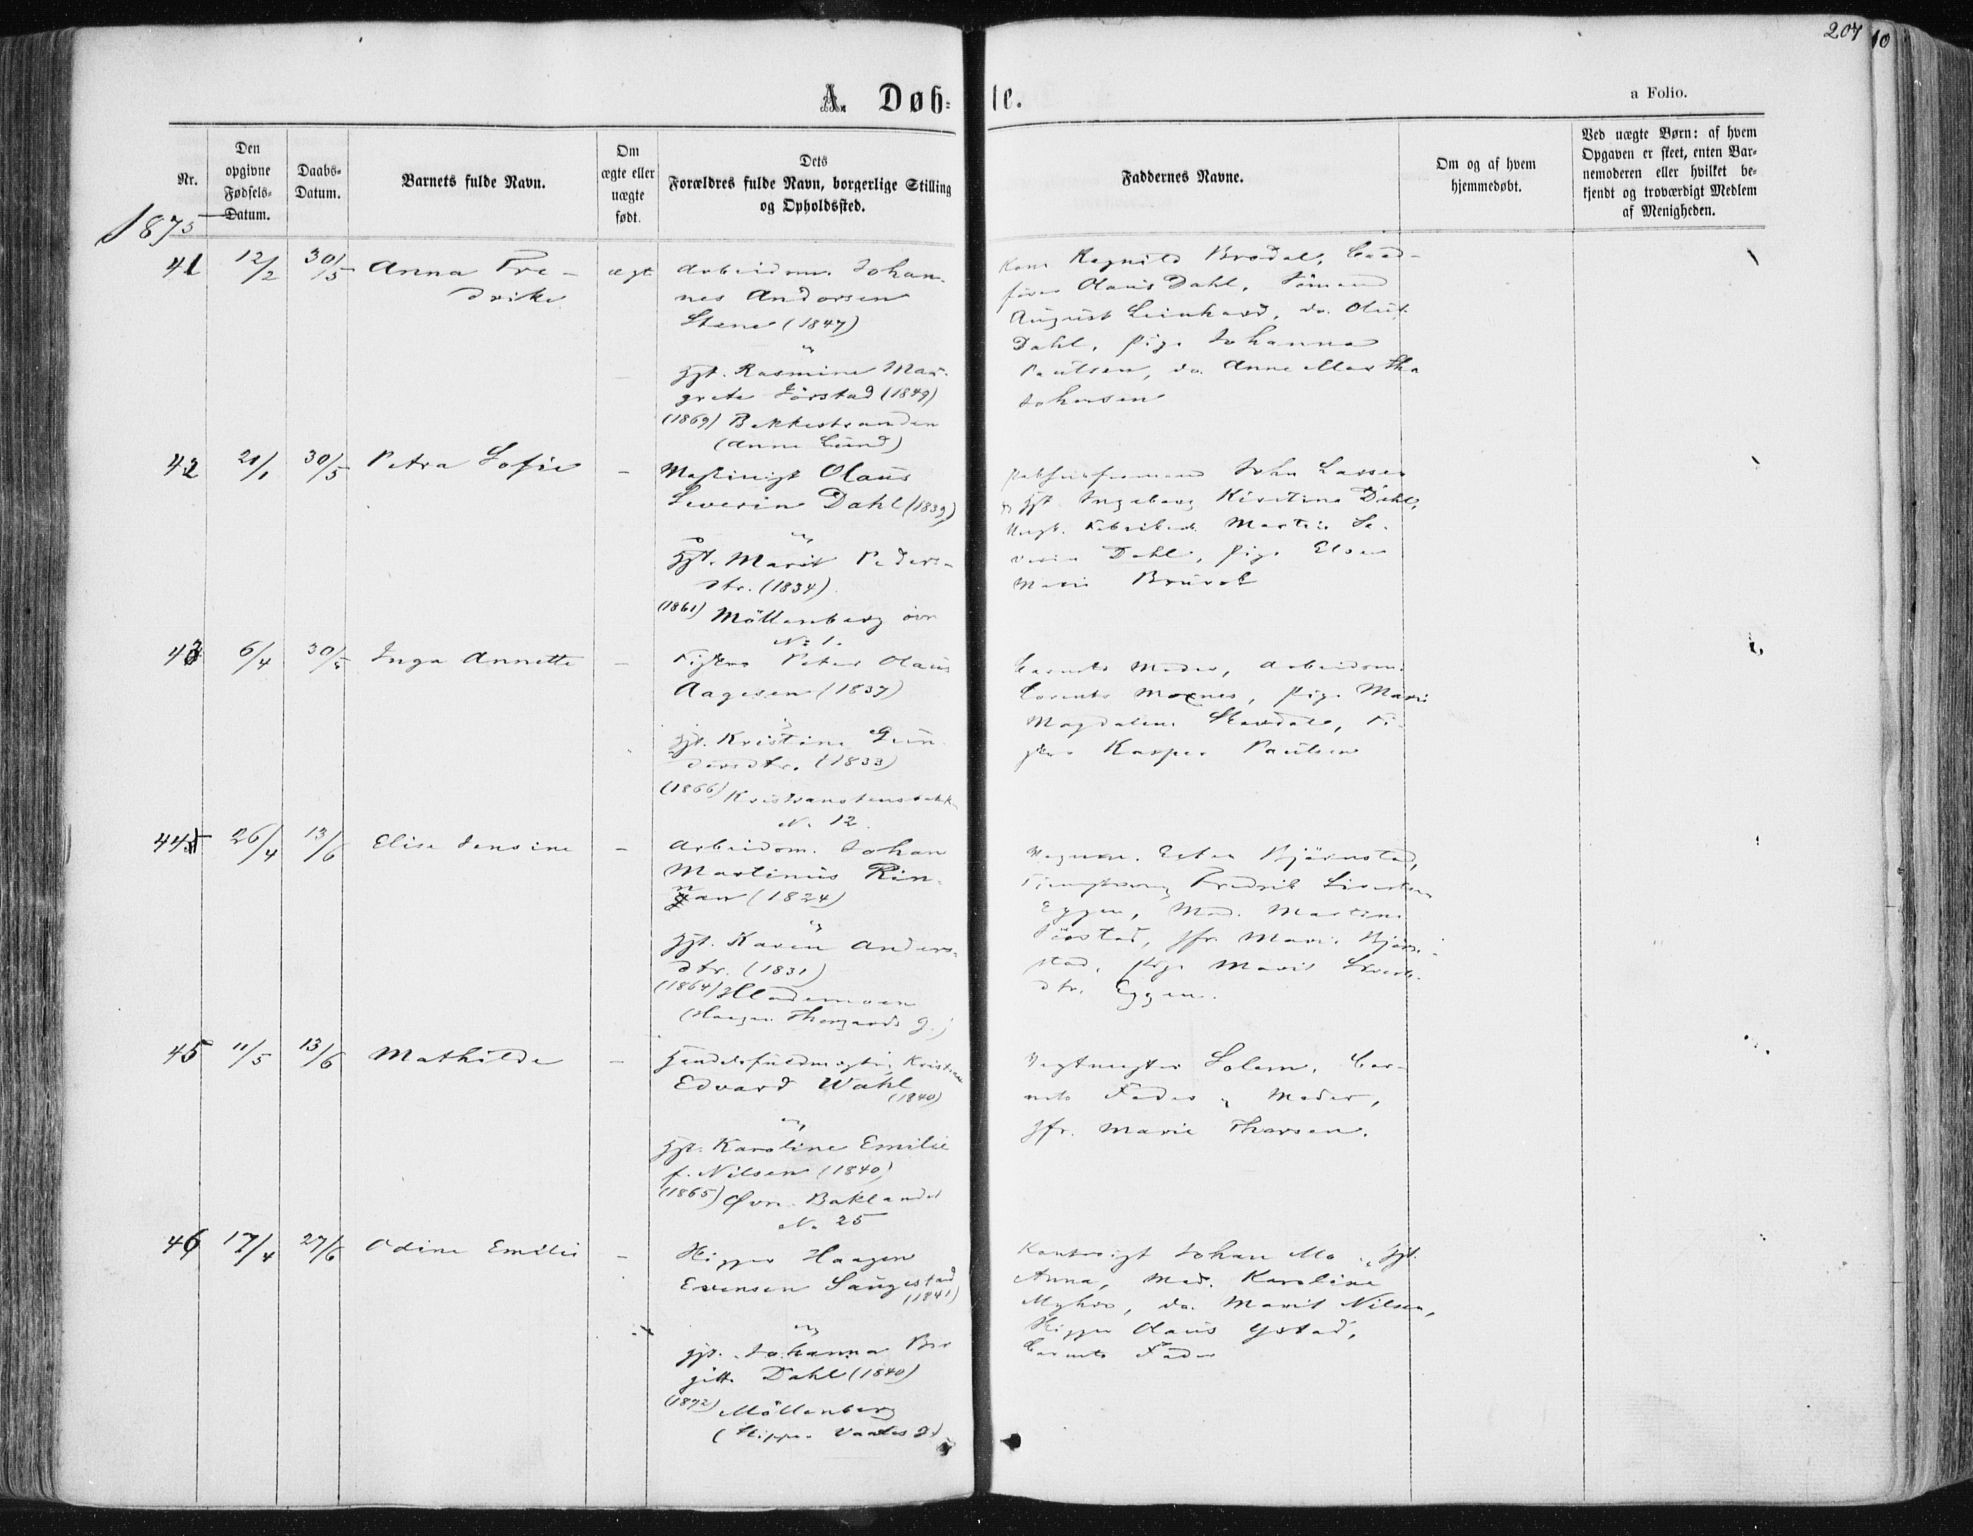 207 10
A. Døb- te.
a Folio.
Nr.
Den opgivne Fødsels-Datum.
Daabs-Datum.
Barnets fulde Navn.
Om ægte eller uægte født.
Dets Forældres fulde Navn, borgerlige Stilling og Opholdssted.
Faddernes Navne.
Om og af hvem hjemmedøbt.
Ved uægte Børn: af hvem Opgaven er skeet, enten Barnemoderen eller hvilket bekjendt og troværdigt Medlem af Menigheden.
1875
41 12/2 30/5 Anna Fre-
drike
ægt.
Arbeidsm. Johan-
nes Andorsen
Stene (1847)
og
Hst. Rasmine Mar-
grete Jørstad (1849)
(1869) Bakkestranden
(Anne Lund)
Kone Ragnild Brodal,
Olaus Dahl, Sømand
August Leinhard, do. Oluf
Dahl, Pige Johanna
Paulsen, do. Anne Martha
Johnsen
42 21/1 30/5 Petra Sofie
-
Maskinist Olaus
Severin Dahl (1839)
og
Hst. Marit Peders-
dtr. (1834)
(1861) Möllenberg övr
No 1.
John Larsen
& Hst. Ingeborg Kirstine Dahl,
Martin Se-
verin Dahl, Pige Elen
Marie Bruvol
43 6/4 30/5 Inga Annette
-
Fisker Peter Olaus
Aagesen (1837)
og
Hst. Kristine Gun-
dersdtr. (1833)
(1866) Kristianstensbakk.
No. 12
Barnets Moder, Arbeidsm.
Lorents Moxnes, Pige Marie
Magdalene Stavdal, Fi-
sker Kasper Paulsen
44 26/4 13/6 Elise Jensine
-
Arbeidsm. Johan
Martinus Rin-
nan (1824)
og
Hst. Karen Anders-
dtr. (1831)
(1864) Hlademoen
(Haagen Thorgaards G.)
Peter Bjørnstad,
Fredrik Sivertsen
Eggen, Mad. Martine
Jørstad, Jfr. Marie Bjørn-
stad, Pige Marit Siverts-
dtr. Eggen.
45 11/5 13/6 Mathilde
-
Handelsfuldmægtig Kristian
Edvard Wahl
(1840)
og
Hst. Karoline Emilie
f. Nilsen (1840)
(1865) Øvr. Baklandet
No. 25
Vegtmester Solem, Bar-
nets Fader & Moder,
Jfr. Marie Thorsen.
46 17/4 27/6 Odine Emilie
-
Skipper Haagen
Evensen Saugestad
(1841)
og
Hst. Johanna Bir
gitte Dahl (1840)
(1872) Möllenberg
(Skipper Vaates G)
Johan Mo & Hst.
Anna, Mad. Karoline
Myhre, do. Marit Nilsen,
Skipper Olaus Ystad,
Barnets Fader